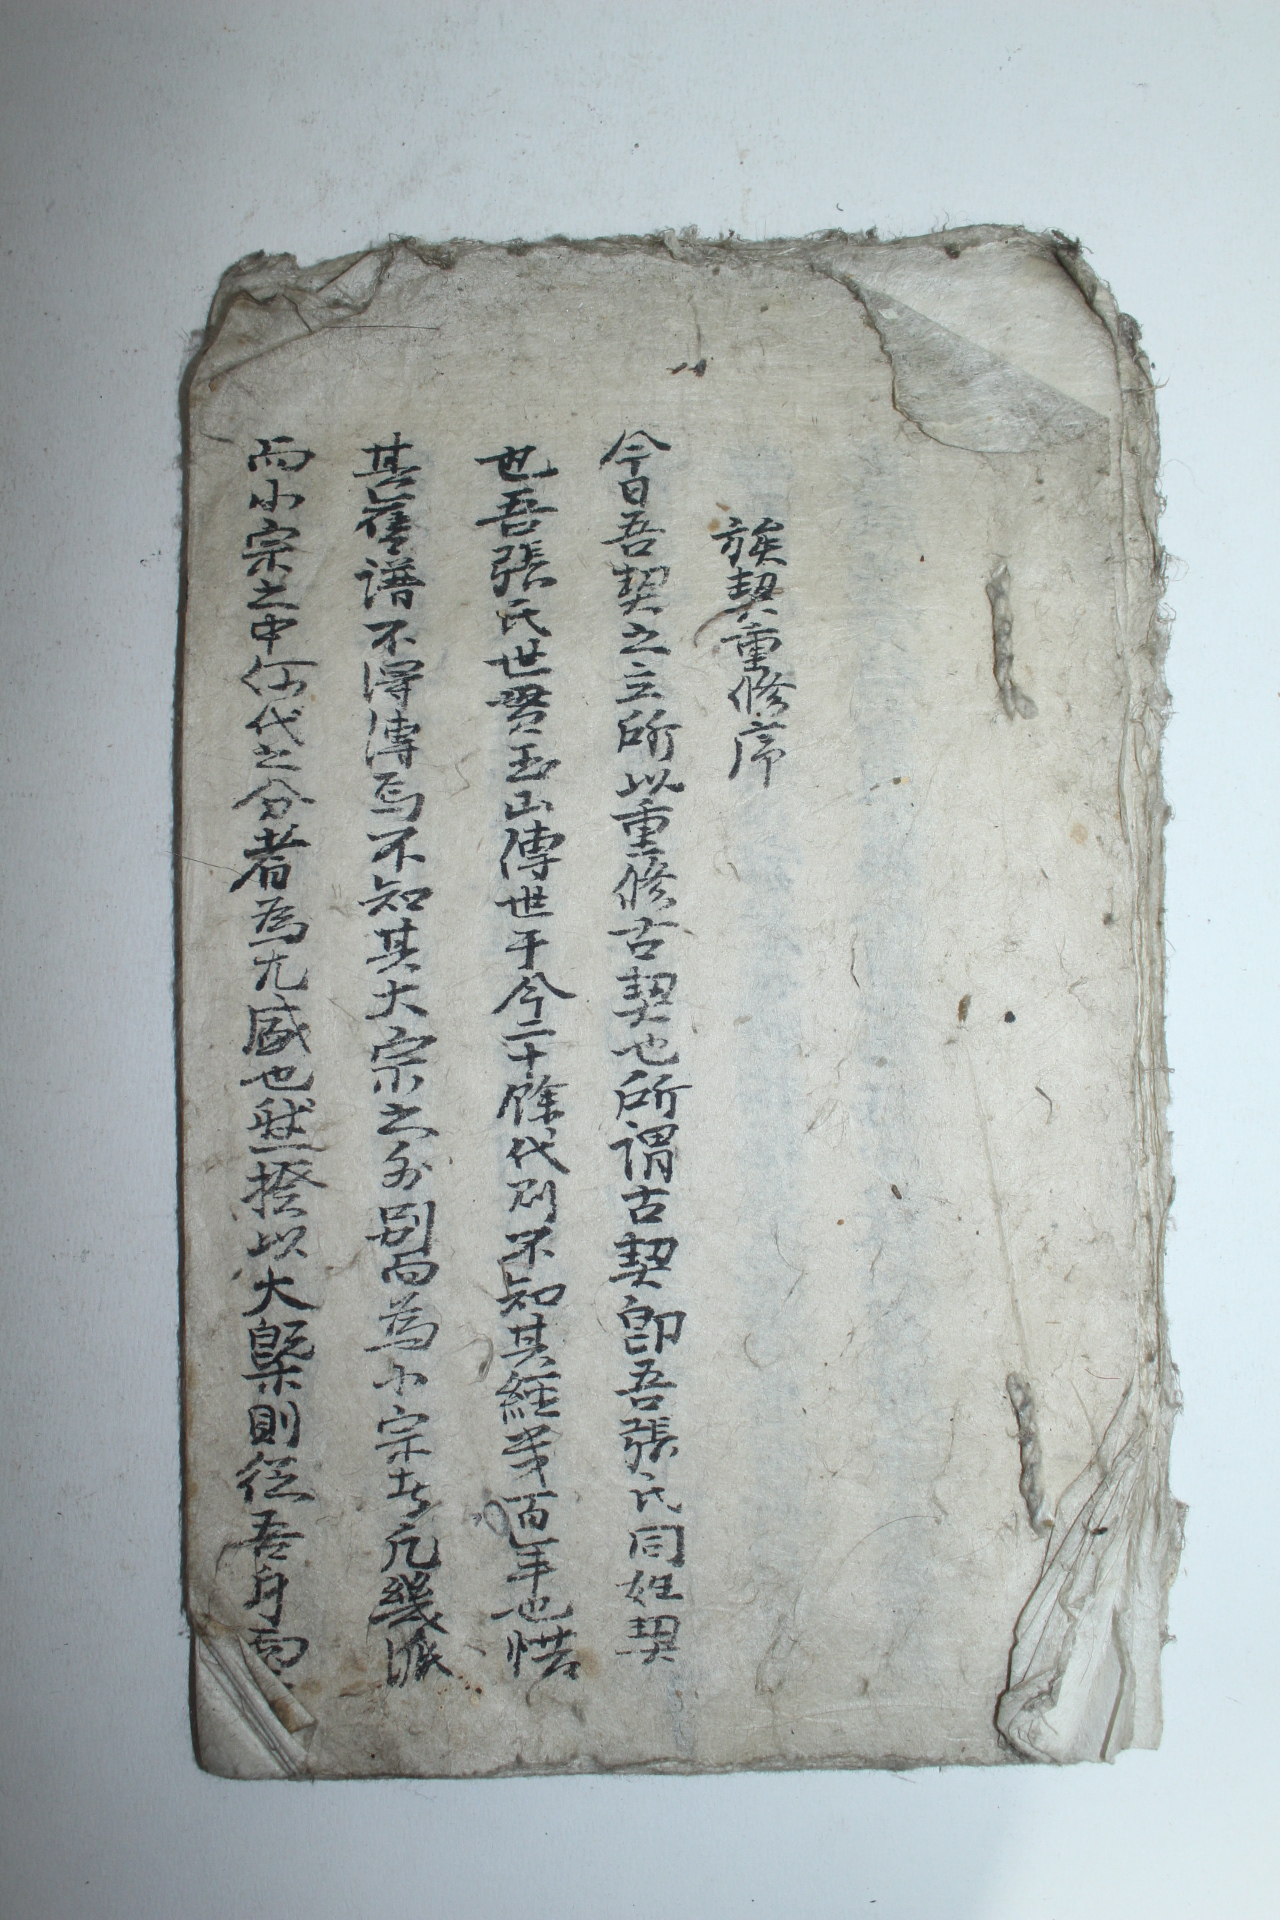 族契重修序
今日吾契之立所以重修古契也所謂古契卽吾張氏同姓契
也吾張氏世貫玉山傳世于今二十餘代則不知其經幾百年也惜
其舊譜不得傳焉不知其大宗之外別而爲小宗者凡幾派
而小宗之中何代之分者爲尤盛也然揆以大槩則從吾身而